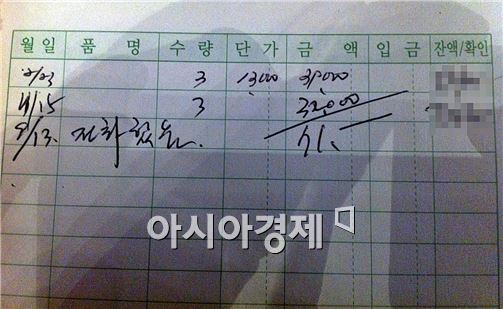 월 일 품 명 수 량 단 가 금 액 입 금 잔액/확인
3 1300 39000
4/15 3 32,000
9/13. 전화했음.
아시아경제